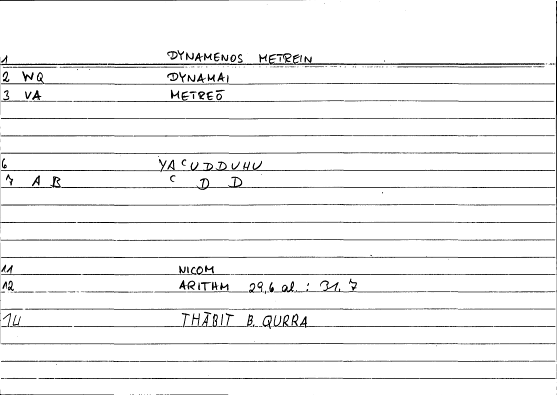 1 DYNAMENOS METREIN
2 WQ DYNAMAI
3 VA METREŌ
6 YAᶜUDDUHU
7 A B ᶜ D D
11 NICOM
12 ARITHM 29,6 al. : 31,7
14 THĀBIT B. QURRA